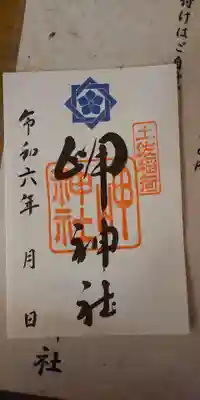 付けはご
土佐稲荷
岬神社
岬
神社
令和六年　月　日
社